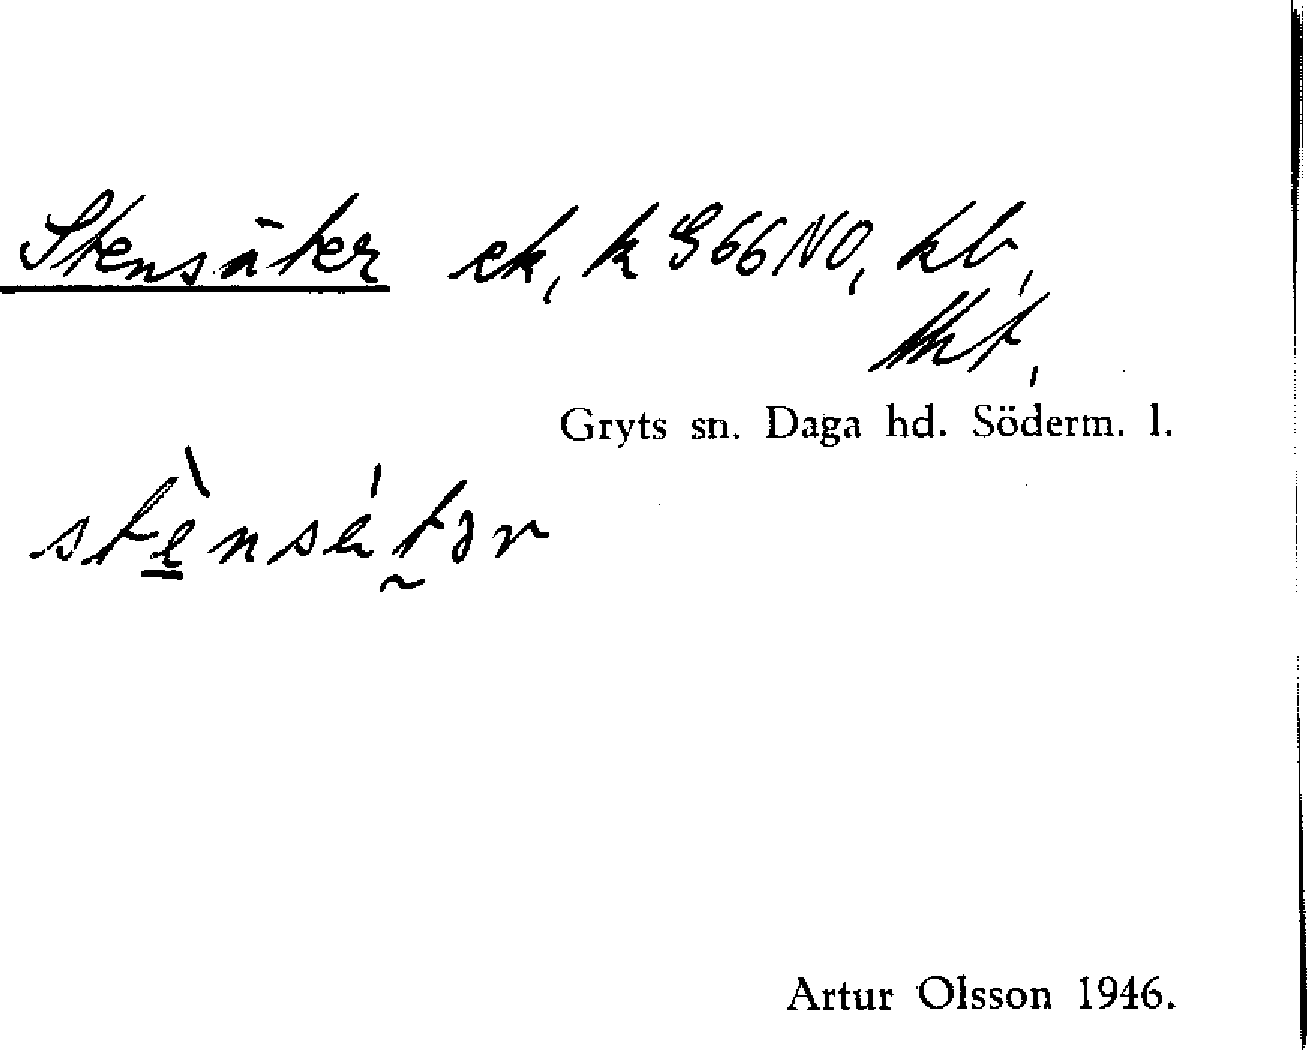 Stensäter ek, k G66NO, kb,
tkt,
Gryts sn. Daga hd. Söderm. l.
Artur Olsson 1946.